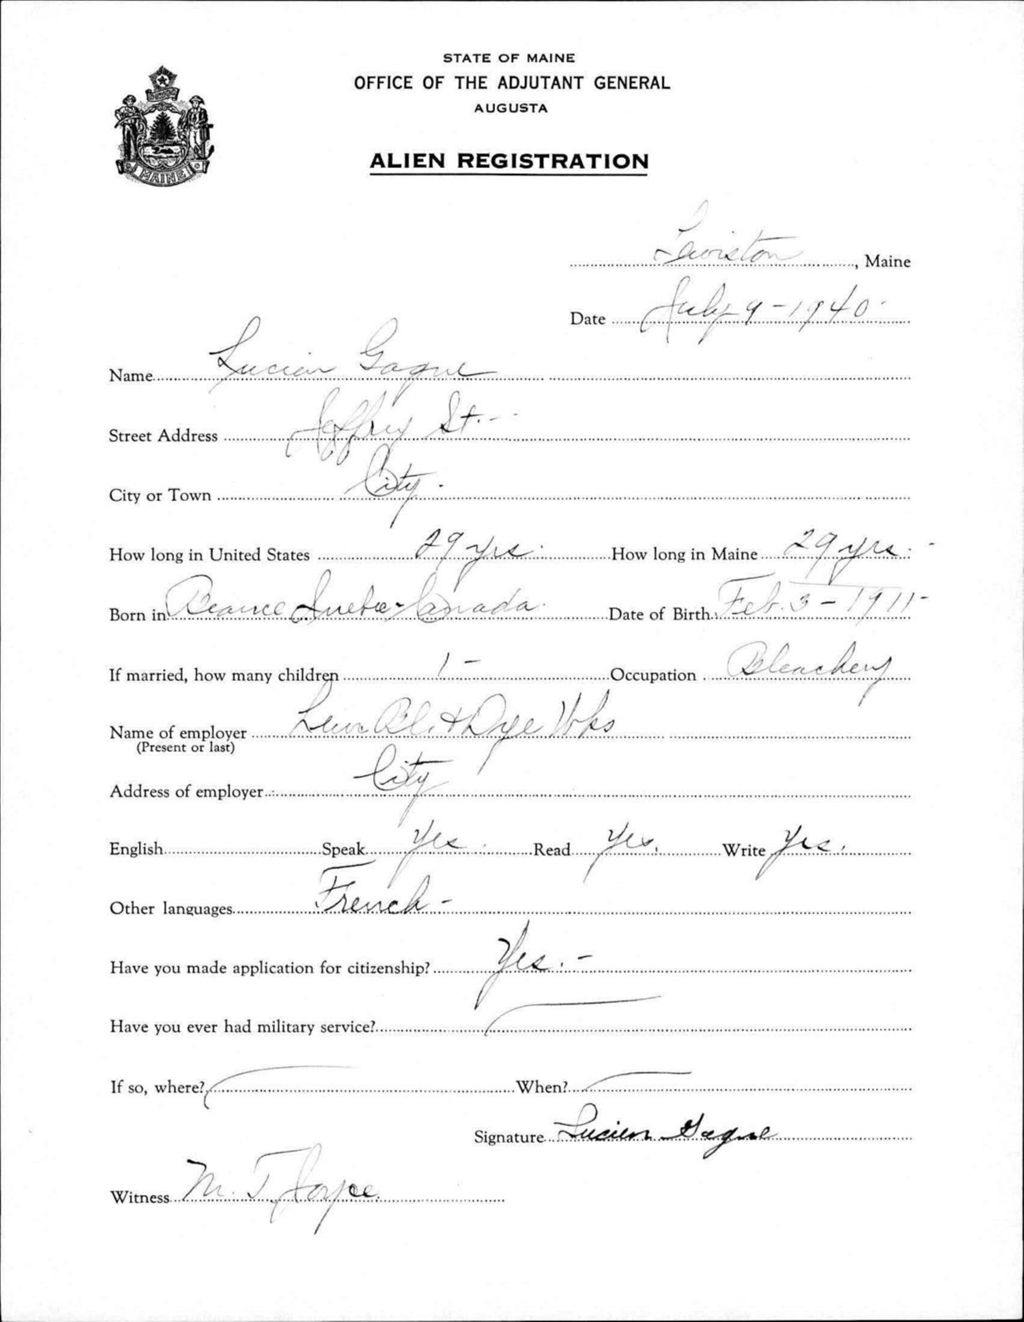 STATE OF MAINE
OFFICE OF THE ADJUTANT GENERAL
AUGUSTA
ALIEN REGISTRATION
MAINE
Lewiston, Maine
Date July 9-1940-
Name Lucien Gagne
Street Address Jeffrey St.-
City or Town City.
How long in United States 29 yrs. How long in Maine 29 yrs.-
Born in Beauce Quebec Canada. Date of Birth Feb. 3-1911-
If married, how many children 1- Occupation Bleachery
Name of employer Lew Bl. & Dye Wks
(Present or last)
Address of employer City
English Speak Yes. Read Yes. Write Yes.
Other languages French-
Have you made application for citizenship? Yes.-
Have you ever had military service?
If so, where? When?
Signature Lucien Gagne
Witness M. T. Joyce